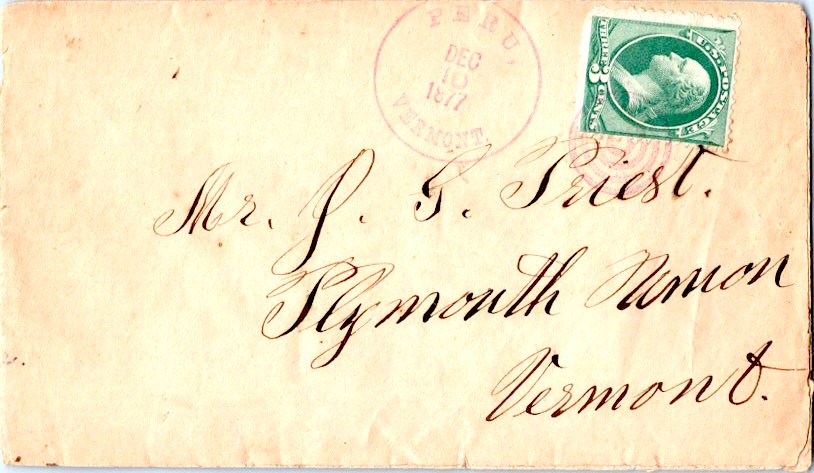 PERU,
DEC
10
1877
VERMONT
U.S. POSTAGE
THREE 3 CENTS
Mr. J. G. Priest.
Plymouth Union
Vermont.